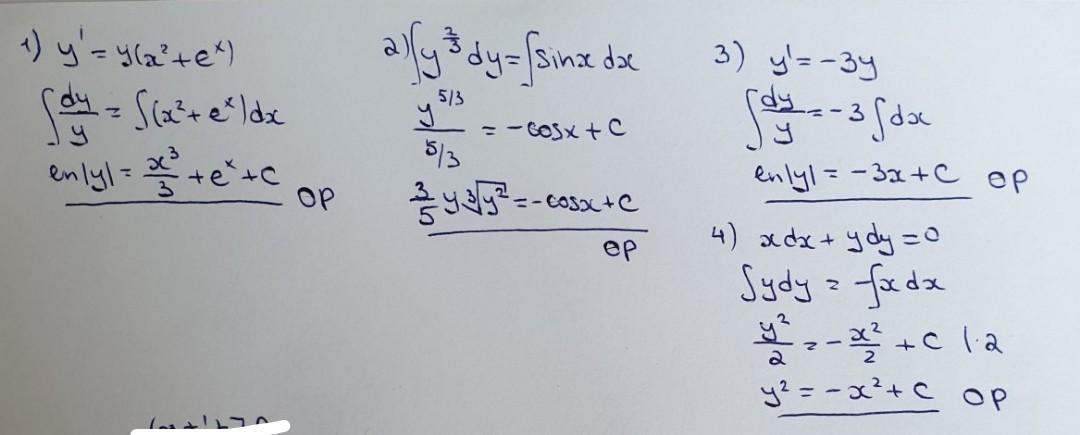 1) y' = y(x² + eˣ)
∫ dy/y = ∫(x² + eˣ)dx
en|y| = x³/3 + eˣ + C OP
2) ∫y^(2/3) dy = ∫sinx dx
y^(5/3) / 5/3 = -cosx + C
3/5 y ∛y² = -cosx + C
OP
3) y' = -3y
∫ dy/y = -3 ∫dx
en|y| = -3x + C OP
4) x dx + y dy = 0
∫y dy = -∫x dx
y²/2 = - x²/2 + C |·2
y² = -x² + C OP